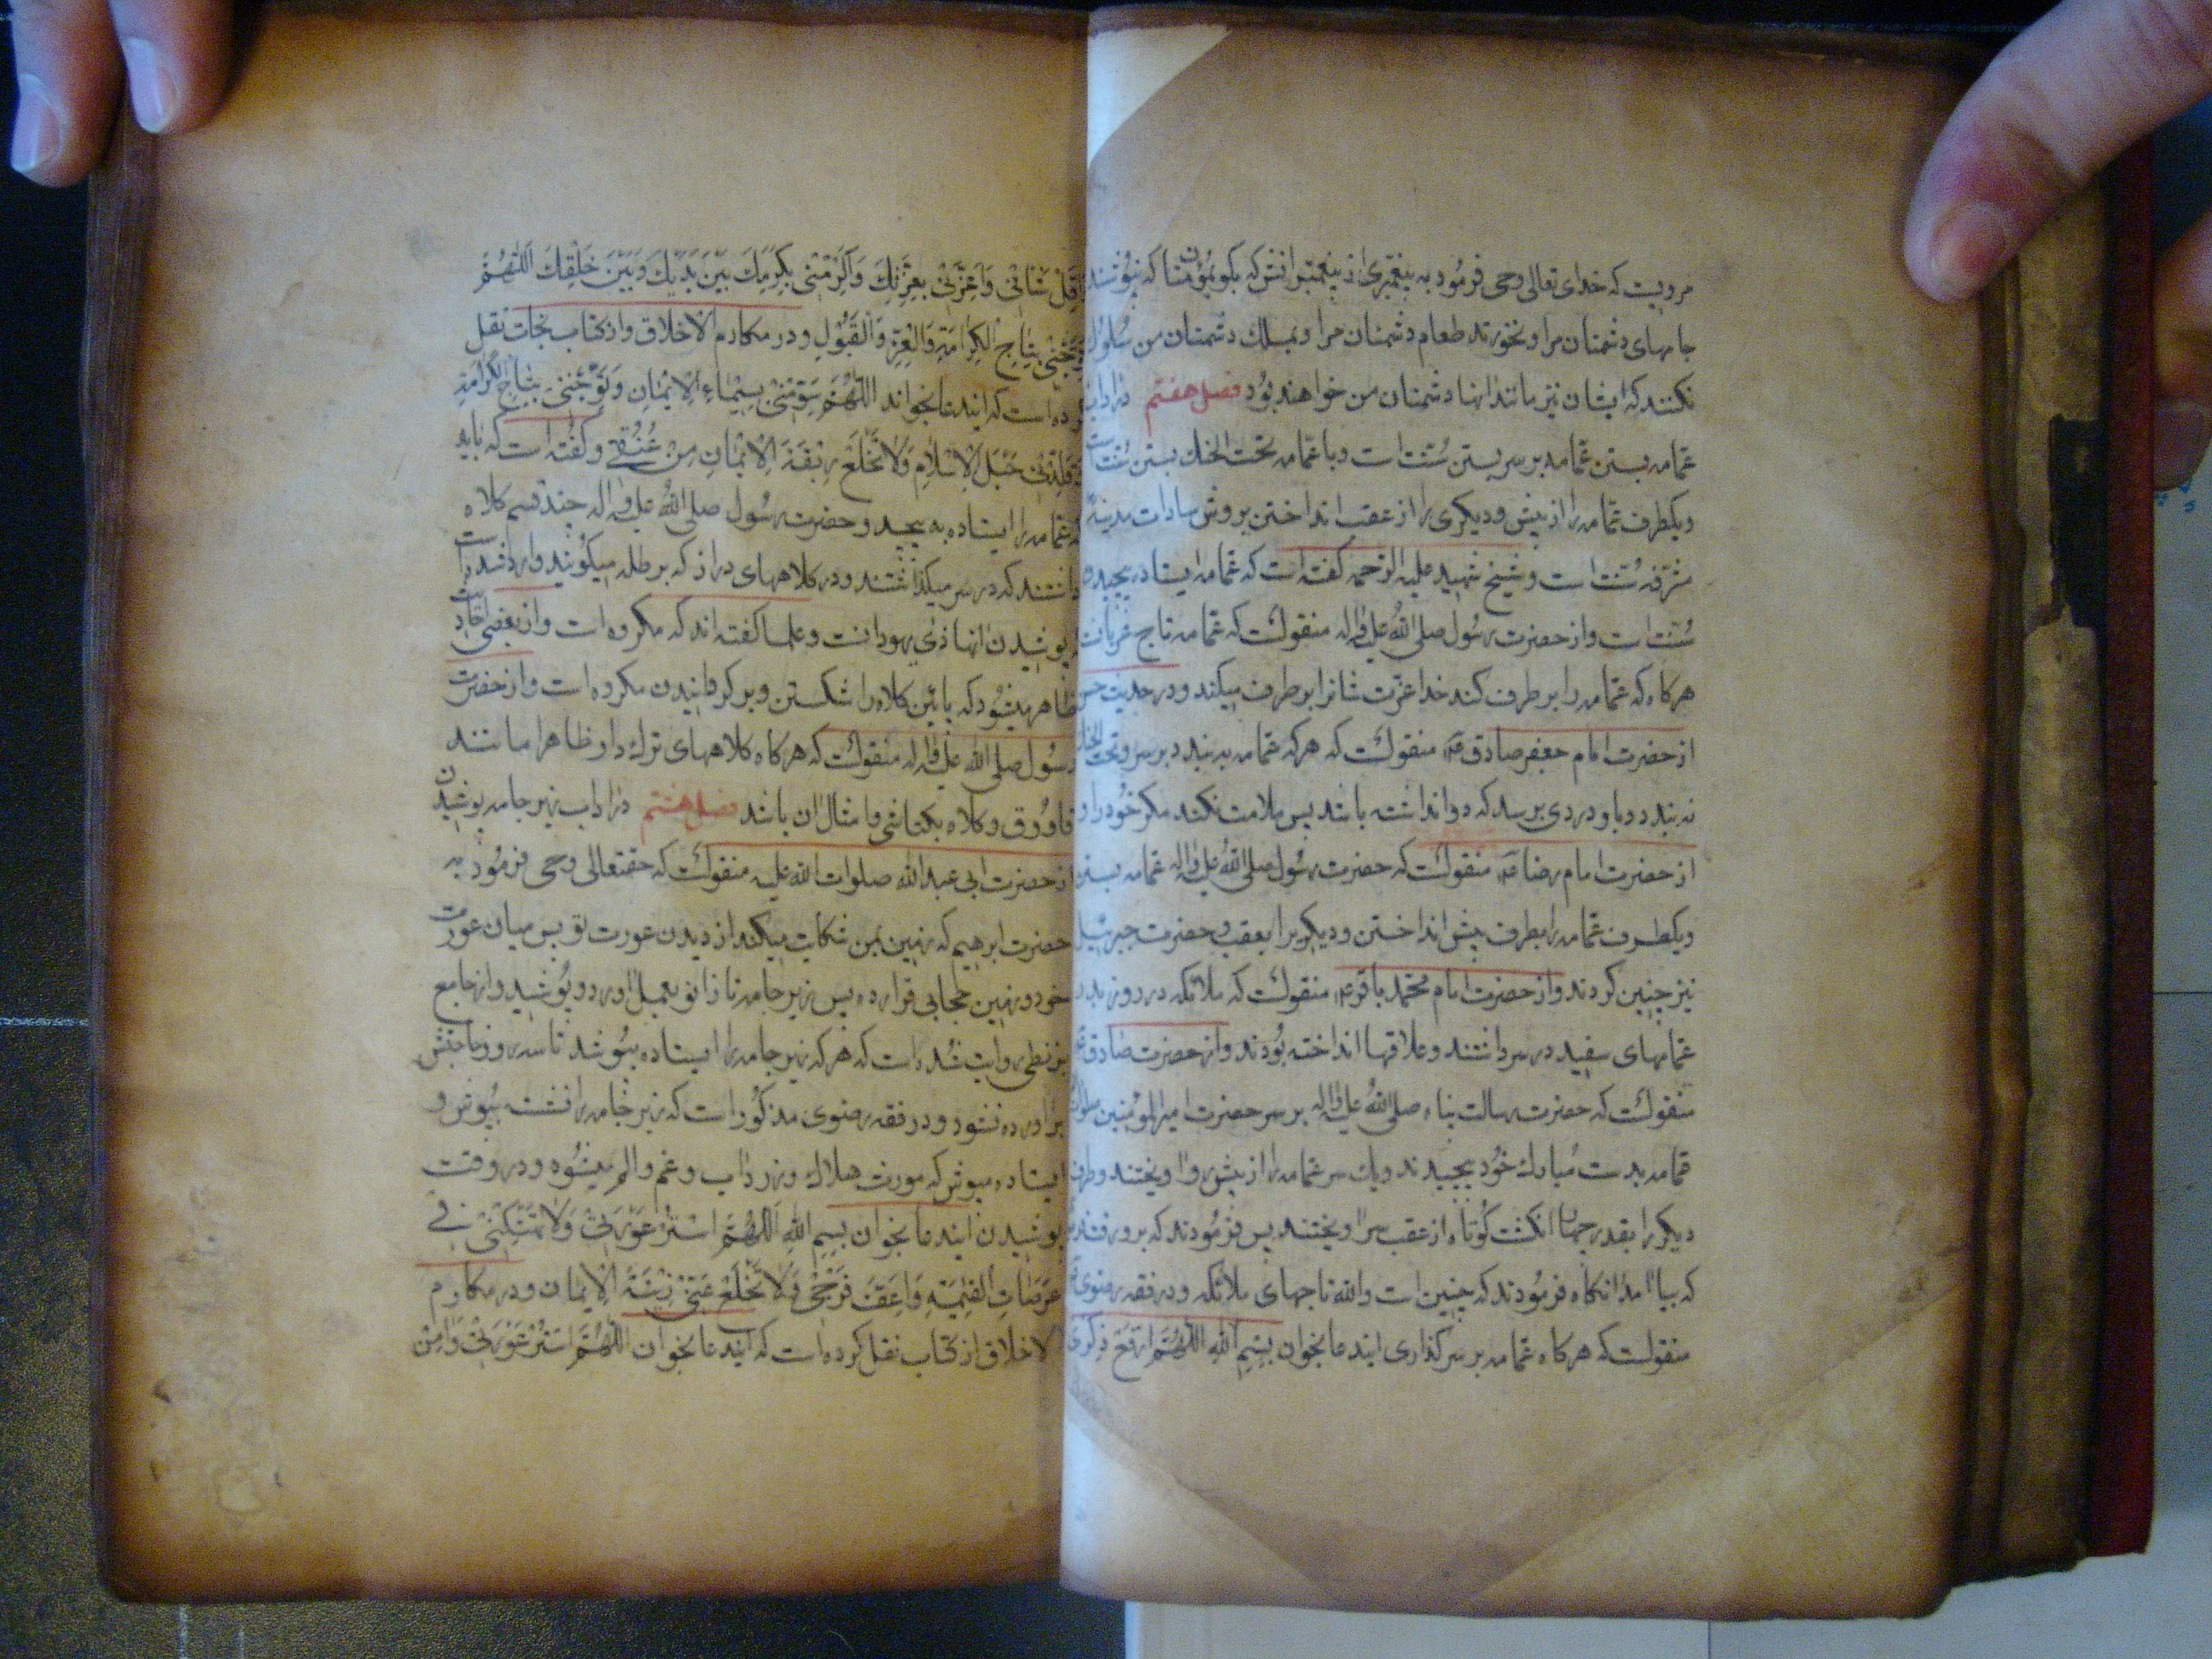 مرویست که خدای تعالی وحی فرمود به پیغمبری از پیغمبرانش که بکو بمؤمنان که نپوشند
جامهای دشمنان مرا و نخورند طعام دشمنان مرا و بمسلك دشمنان من سلوك
نکنند که ایشان نیز مانند انها دشمنان من خواهند بود فصل هفتم در اداب
عمامه بستن عمامه بر سر بستن سنت است و با عمامه تحت الحنك بستن سنت است
و یکطرف عمامه را از پیش و دیکری را از عقب انداختن بروش سادات مدینهٔ
مشرفه سنت است و شیخ شهید علیه الرحمه کفته است که عمامه ایستاده پیچیدن
سنت است و از حضرت رسول صلی الله علیه واله منقولست که عمامه تاج عربانست
هرکاه که عمامه را بر طرف کنند خدا عزت شانرا بر طرف میکند و در حدیث حسن
از حضرت امام جعفر صادق منقولست که هرکه عمامه به بندد بر سر و تحت الحنك
نه بندد و باو دردی برسد که دوا نداشته باشد پس ملامت نکند مکر خود را و
از حضرت امام رضا منقولست که حضرت رسول صلی الله علیه واله عمامه بستن
و یکطرف عمامه را بطرف پیش انداختن و دیکریرا بعقب و حضرت جبرئیل
نیز چنین کردند و از حضرت امام محمد باقر منقولست که ملائکه در روز بدر
عمامهای سفید در سر داشتند و علاقها انداخته بودند و از حضرت صادق
منقولست که حضرت رسالت پناه صلی الله علیه واله بر سر حضرت امیرالمؤمنین صلوات
عمامه بدست مبارك خود پیچیدند و یك سر عمامه را از پیش رو اویختند و طرف
دیکر را بقدر چهار انکشت کوتاه از عقب سر اویختند پس فرمودند که برو رفتند
که بیا امد انکاه فرمودند که چنین است والله تاجهای ملائکه و در فقه رضوی
منقولست که هرکاه عمامه بر سر کذاری ایندعا بخوان بِسْمِ اللهِ اللّهُمَّ ارْفَعْ ذِكْرِى
شَانِى وَاَعِزَّنِى بِعِزَّتِكَ وَاَكْرِمْنِى بِكَرَمِكَ بَيْنَ يَدَيْكَ وَبَيْنَ خَلْقِكَ اَللّهُمَّ
تَوِّجْنِى بِتَاجِ الْكَرَامَةِ وَالْعِزَّةِ وَالْقَبُولِ و در مکارم الاخلاق و از کتاب نجات نقل
کرده است که ایندعا بخواند اَللّهُمَّ سَوِّمْنِى بِسِيْمَاءِ الْاِيْمَانِ وَتَوِّجْنِى بِتَاجِ الْكَرَامَةِ
وَقَلِّدْنِى حَبْلَ الْاِسْلَامِ وَلَا تَخْلَعْ رِبْقَةَ الْاِيْمَانِ مِنْ عُنُقِى و کفته است که باید
که عمامه را ایستاده به پیچد و حضرت رسول صلی الله علیه واله چند قسم کلاه
داشتند که در سر میکذاشتند و در کلاههای دراز که برطله میکویند وارد شده است
که پوشیدن انها زی یهود انست و علما کفته اند که مکروه است و از بعضی احادیث
ظاهر میشود که پایین کلاه را شکستن و بر کردانیدن مکروه است و از حضرت
رسول صلی الله علیه واله منقولست که هرکاه کلاههای ترك دار ظاهرا مانند
قاووق و کلاه بکتاشی و امثال ان باشد فصل هشتم در اداب زیر جامه پوشیدن
از حضرت ابی عبدالله صلوات الله علیه منقولست که حقتعالی وحی فرمود به
حضرت ابراهیم که زمین بمن شکایت میکند از دیدن عورت تو پس میان عورت
خود و زمین حجابی قرار ده پس زیر جامه تا زانو بعمل اورد و پوشید و از جامع
بزنطی روایت شده است که هرکه زیر جامه را ایستاده بپوشد تا سه روز حاجتش
براورده نشود و در فقه رضوی مذکور است که زیر جامه را نشسته بپوش و
ایستاده مپوش که مورث هلاك و زرداب و غم و الم میشود و در وقت
پوشیدن ایندعا بخوان بِسْمِ اللهِ اَللّهُمَّ اسْتُرْ عَوْرَتِى وَلَا تَهْتِكْنِى فِى
عَرَصَاتِ الْقِيٰمَةِ وَاَعِفَّ فَرْجِى وَلَا تَخْلَعْ عَنِّى زِيْنَةَ الْاِيْمَانِ و در مکارم
الاخلاق از کتاب نقل کرده است که ایندعا بخوان اَللّهُمَّ اسْتُرْ عَوْرَتِى وَاٰمِنْ